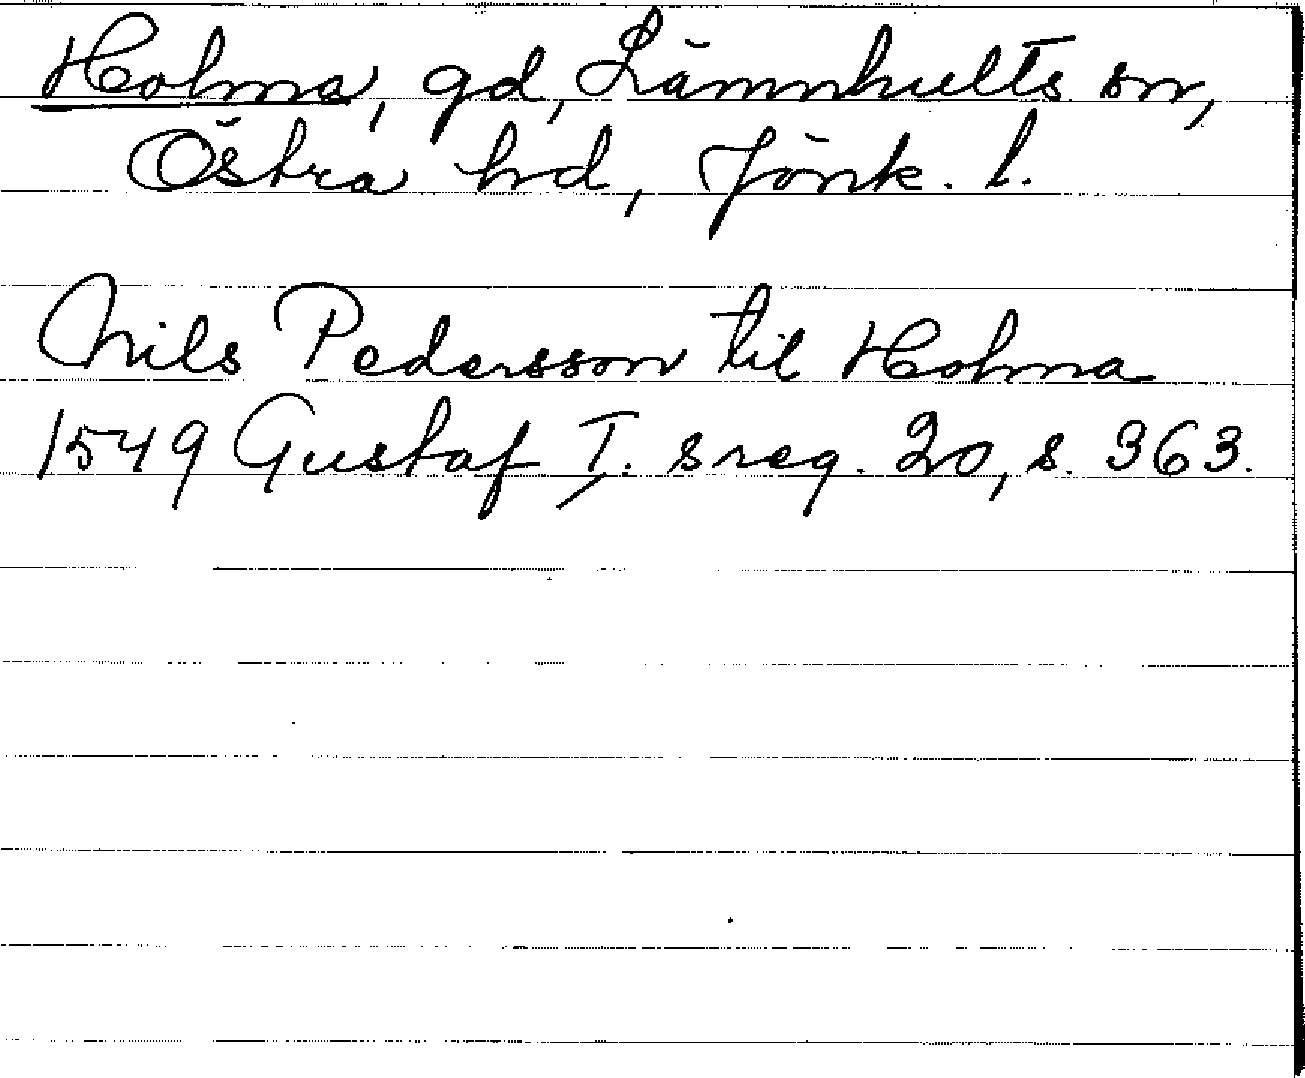 Holma, gd, Lämnhults sn,
Östra hd, Jönk. l.
Nils Pedersson til Holma
1549 Gustaf I. s reg. 20, s. 363.